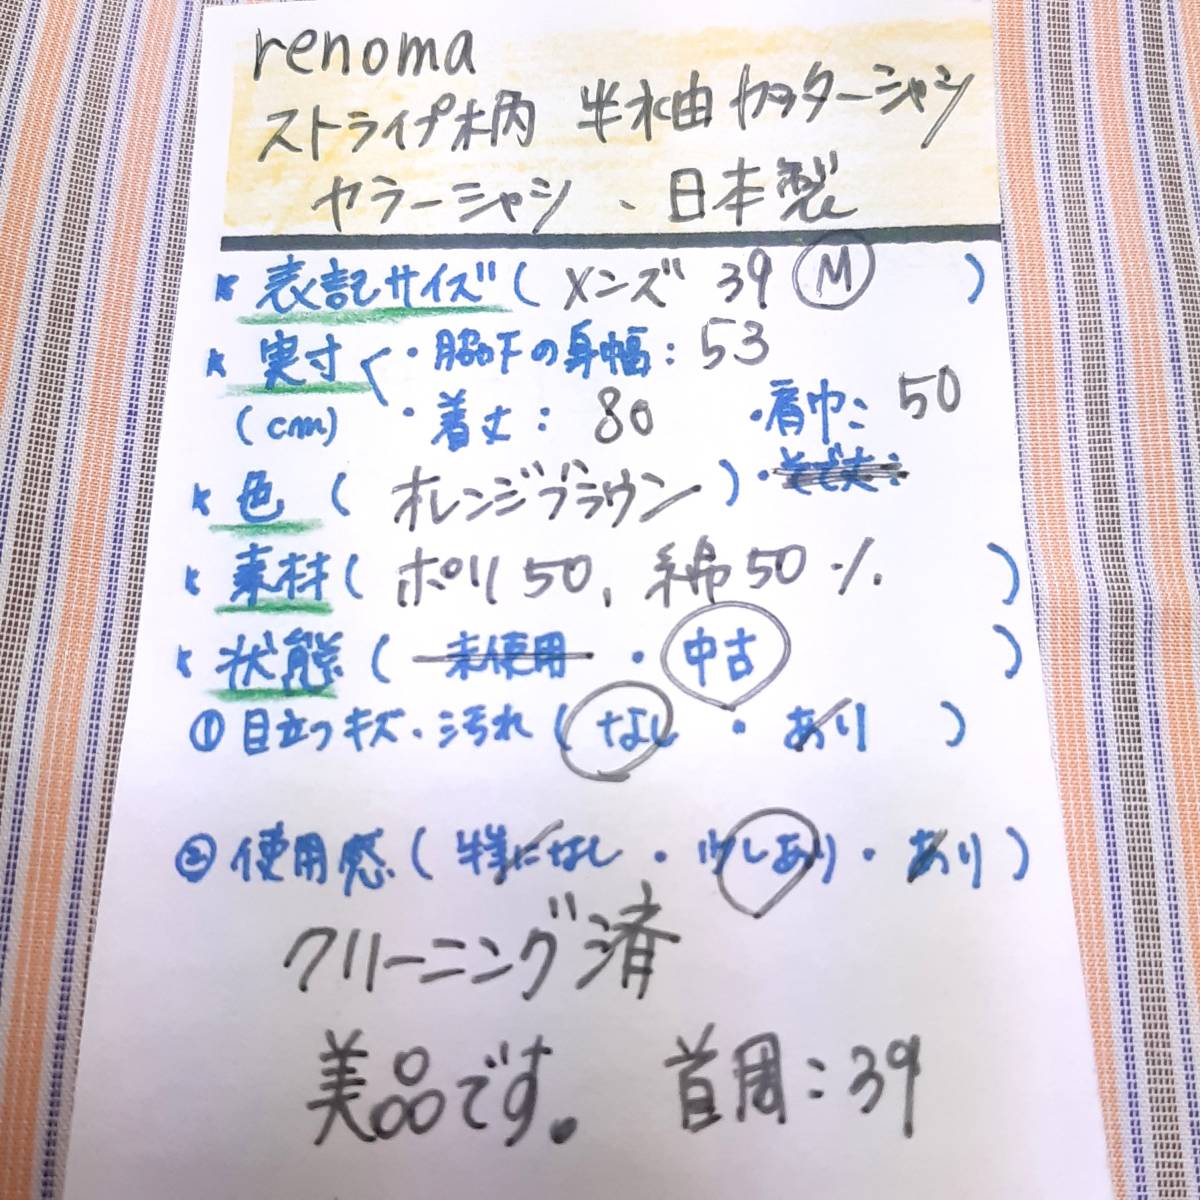 renoma
ストライプ柄 半袖 カッターシャツ
カラーシャツ、日本製
表記サイズ ( メンズ 39 M )
実寸 ・脇下の身幅: 53
(cm) ・着丈: 80 ・肩巾: 50
色 ( オレンジブラウン ) ・そで丈:
素材 ( ポリ50、綿50% )
状態 ( 未使用 ・ 中古 )
① 目立つキズ・汚れ ( なし ・ あり )
② 使用感 ( 特になし ・ 少しあり ・ あり )
クリーニング済
美品です。 首周:39